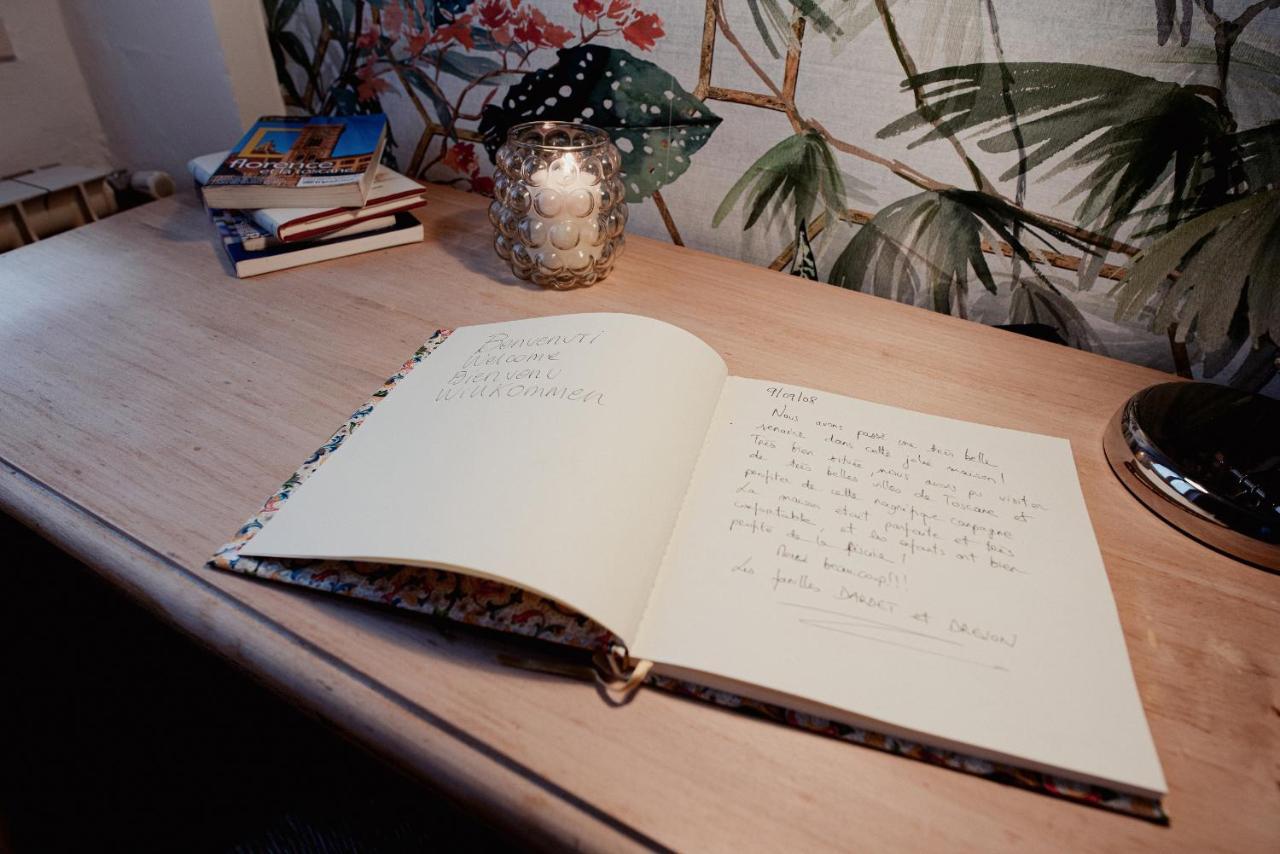 florence
et la toscane
BENVENUTI
Welcome
BIENVENU
WILLKOMMEN
9/09/08
Nous avons passé une très belle
semaine dans cette jolie maison!
Très bien située, nous avons pu visiter
de très belles villes de Toscane et
profiter de cette magnifique campagne
La maison était parfaite et très
confortable, et les enfants ont bien
profité de la piscine!
Merci beaucoup!!!
Les familles DARDET et